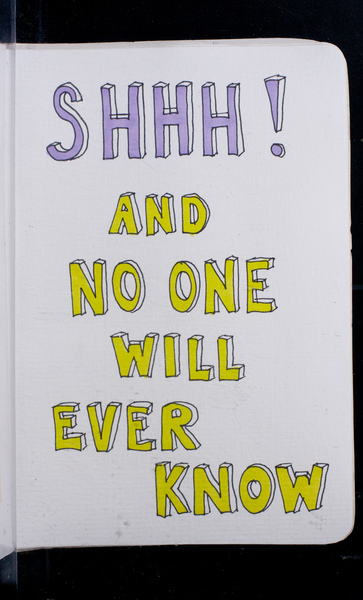 SHHH!
AND
NO ONE
WILL
EVER
KNOW